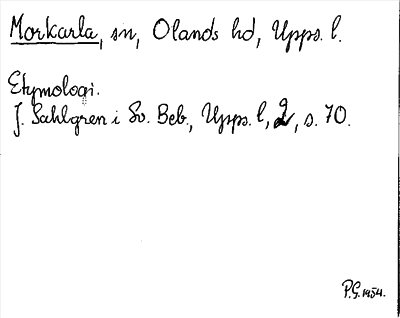 Morkarla, sn, Olands hd, Upps. l.
Etymologi.
J. Sahlgren i Sv. Beb., Upps. l, 2, s. 70.
P.G. 1954.